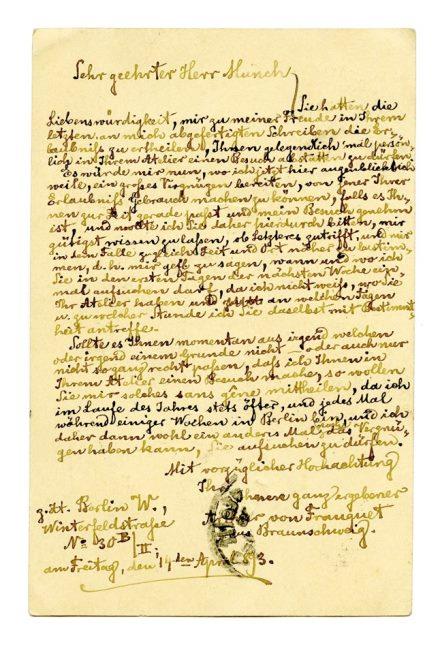 Sehr geehrter Herr Munch
Sie hatten die
Liebenswürdigkeit, mir zu meiner Freude in Ihrem
letzten an mich abgefertigten Schreiben die Er-
laubniß zu ertheilen, Ihnen gelegentlich 'mal persön-
lich in Ihrem Atelier einen Besuch abstatten zu dürfen.
Es würde mir nun, wo ich jetzt hier augenblicklich
weile, ein großes Vergnügen bereiten, von jener Ihrer
Erlaubniß Gebrauch machen zu können, falls es Ih-
nen zur Zeit gerade paßt und mein Besuch genehm
ist, und wollte ich Sie daher hierdurch bitten, mir
gütigst wissen zu laßen, ob Letzteres zutrifft, und mir
in dem Falle zugleich Zeit und Ort näher zu bestim-
men, d. h. mir gefl. zu sagen, wann und wo ich
Sie in den ersten Tagen der nächsten Woche ein-
mal aufsuchen darf, da ich nicht weiß, wo Sie
Ihr Atelier haben und an welchen Tagen
u. zu welcher Stunde ich Sie daselbst mit Bestimmt-
heit antreffe.
Sollte es Ihnen momentan aus irgend welchen
oder irgend einem Grunde nicht – oder auch nur
nicht so ganz recht paßen, daß ich Ihnen in
Ihrem Atelier einen Besuch mache, so wollen
Sie mir solches sans gêne mittheilen, da ich
im Laufe des Jahres stets öfter, und jedes Mal
während einiger Wochen in Berlin bin, und ich
daher dann wohl ein anders Mal das Vergnü-
gen haben kann, Sie aufsuchen zu dürfen.
Mit vorzüglicher Hochachtung
Ihr ganz ergebener
von Franquet
aus Braunschweig.
z. Zt. Berlin W.,
Winterfeldstraße
No 30B/II;
am Freitag, den 14ten April 3.